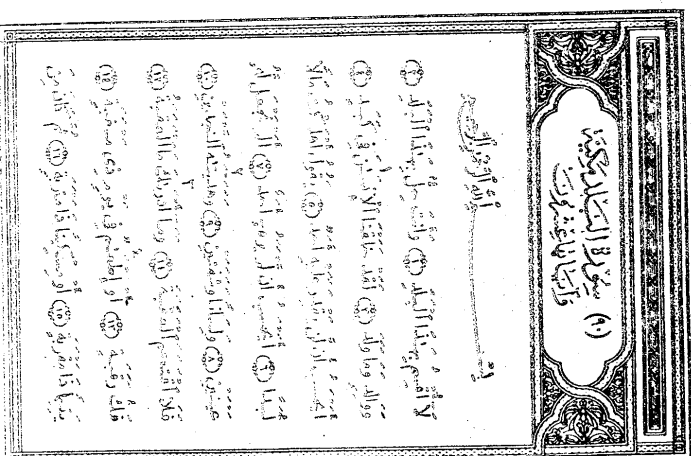 (٩٠) سُورَةُ الْبَلَدِ مَكِّيَّة
وَآيَاتُهَا عِشْرُونَ
بِسْمِ اللَّهِ الرَّحْمَٰنِ الرَّحِيمِ
لَا أُقْسِمُ بِهَٰذَا الْبَلَدِ ﴿١﴾ وَأَنتَ حِلٌّ بِهَٰذَا الْبَلَدِ ﴿٢﴾
وَوَالِدٍ وَمَا وَلَدَ ﴿٣﴾ لَقَدْ خَلَقْنَا الْإِنسَانَ فِي كَبَدٍ ﴿٤﴾
أَيَحْسَبُ أَن لَّن يَقْدِرَ عَلَيْهِ أَحَدٌ ﴿٥﴾ يَقُولُ أَهْلَكْتُ مَالًا
لُّبَدًا ﴿٦﴾ أَيَحْسَبُ أَن لَّمْ يَرَهُ أَحَدٌ ﴿٧﴾ أَلَمْ نَجْعَل لَّهُ
عَيْنَيْنِ ﴿٨﴾ وَلِسَانًا وَشَفَتَيْنِ ﴿٩﴾ وَهَدَيْنَاهُ النَّجْدَيْنِ ﴿١٠﴾
فَلَا اقْتَحَمَ الْعَقَبَةَ ﴿١١﴾ وَمَا أَدْرَاكَ مَا الْعَقَبَةُ ﴿١٢﴾
فَكُّ رَقَبَةٍ ﴿١٣﴾ أَوْ إِطْعَامٌ فِي يَوْمٍ ذِي مَسْغَبَةٍ ﴿١٤﴾
يَتِيمًا ذَا مَقْرَبَةٍ ﴿١٥﴾ أَوْ مِسْكِينًا ذَا مَتْرَبَةٍ ﴿١٦﴾ ثُمَّ كَانَ مِنَ